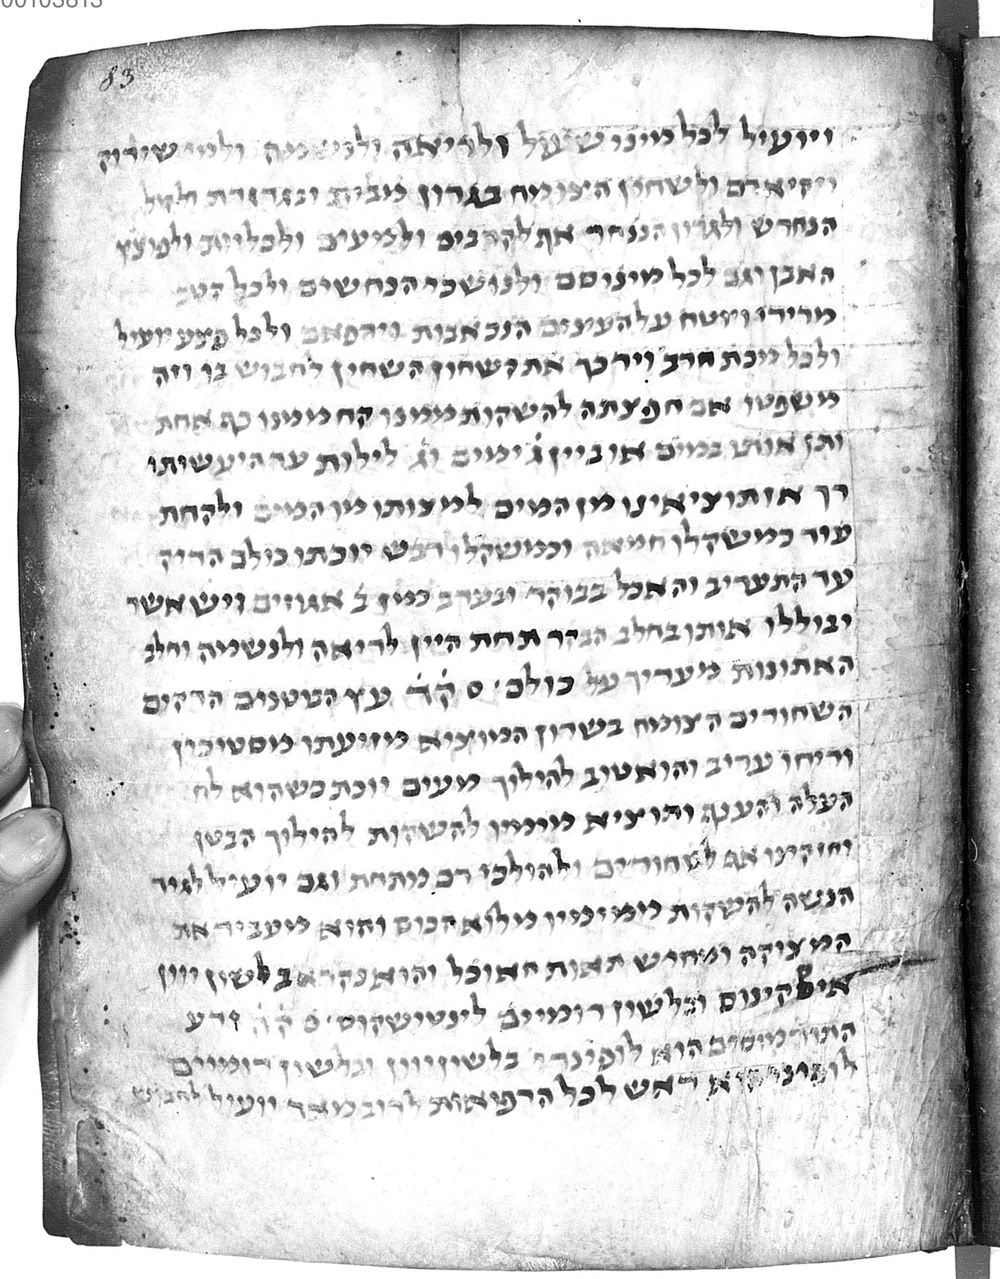 00103813
83
ויועיל לכל מיני שיעול ולריאה ולנשמה
ולשחין הצומח בגרון מבית ובגרגרת
הנחרש ולגרון הננחר אף לקרבים ולמעים ולכליות ולפוצץ
האבן וגם לכל מיני סם ולנושכי הנחשים ולכל
וישטח על העינים הנכאבות וירפאם ולכל פצע יועיל
ולכל מכת חרב וירכך את השחין לחבוש בו וזה
משפטו אם חפצתה להשקות ממנו קח ממנו כף אחת
ותן אותו במים או ביין ג' ימים וג' לילות עד היעשותו
רך אז תוציאינו מן המים למצותו מן המים ולקחת
עוד כמשקלו חמאה וכמשקלו דבש יוכתו כולם הדיק
עד התעריב והאכל בבוקר ובערב כמין ב' אגוזים ויש אשר
יבוללו אותו בחלב הבקר תחת היין לריאה ולנשמה וחלב
האתונות מעריך על כולם ס' ק'ד' עץ הטטנים הדקים
השחורים הצומח בשרון המוציא מזיעתו מסטיכון
וריחו עריב והוא טוב להוליך מעים יוכת כשהוא לח
העלה והענף ותוציא מימיו להשקות להוליך הבטן
וחוקינו אף לשחורים ולהולכי דם מתחת וגם יועיל לגיד
הנשה להשקות ממימיו מלוא הכוס והוא מעביר את
המצוקה ומחיש תאות האוכל והוא נקרא בלשון יוון
אישקינוס ובלשון רומיים לינטישקוס ס' ק'ה' זרע
התורמוסים הוא לופינרי בלשון יוון ובלשון רומיים
ראש לכל הרפואות לרוב מאד ויועיל לחבוש